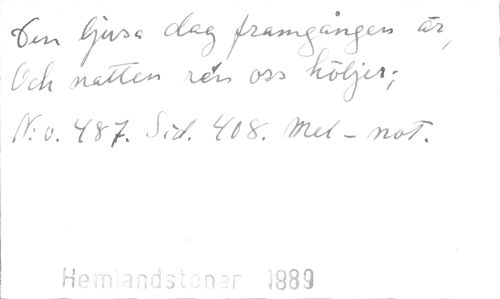 Den ljusa dag framgången är,
Och natten ren oss höljer;
N:o. 487. Sid. 408. Mel-not.
Hemlandstoner 1889